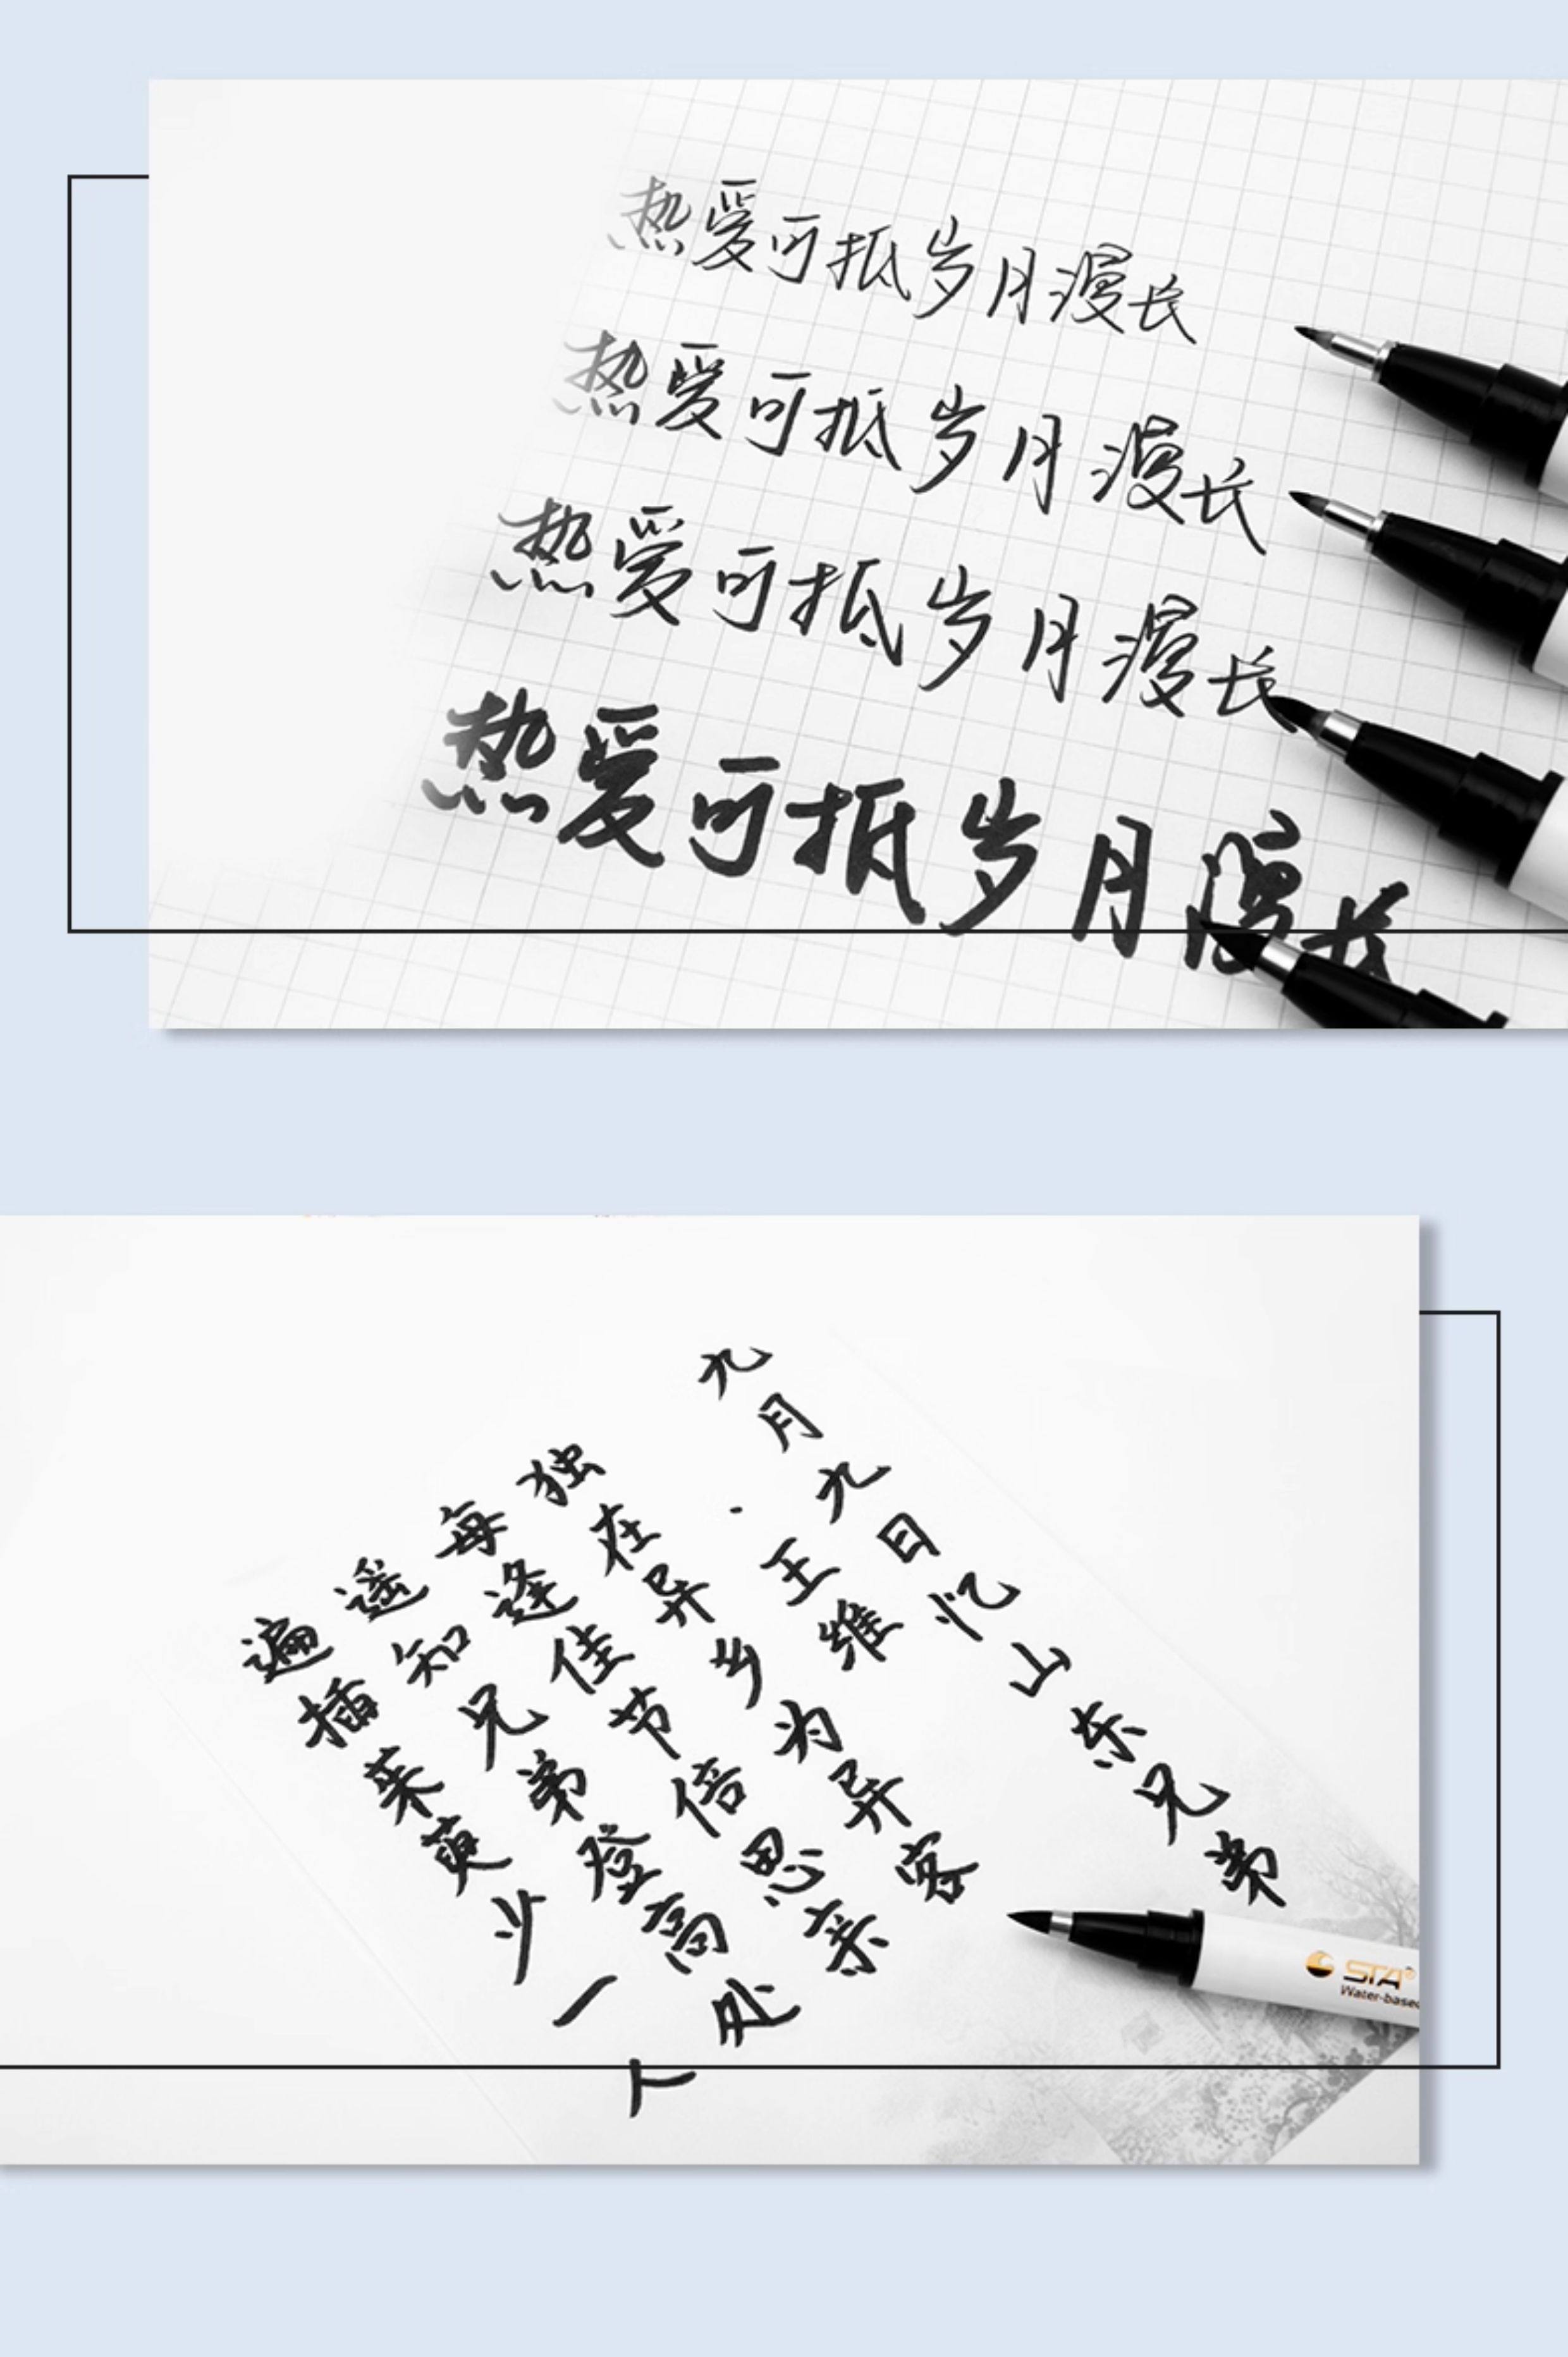 热爱可抵岁月漫长
热爱可抵岁月漫长
热爱可抵岁月漫长
热爱可抵岁月漫长
九月九日忆山东兄弟
·王维
独在异乡为异客
每逢佳节倍思亲
遥知兄弟登高处
遍插茱萸少一人
STA®
Water-based